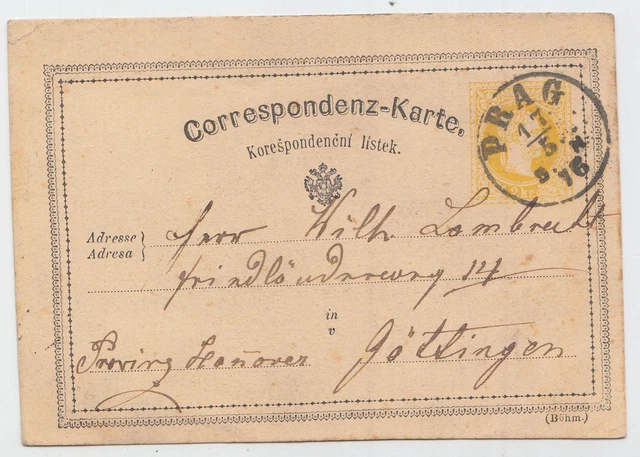 Correspondenz-Karte.
Korešpondenční lístek.
PRAG
17/5
76
2 kr
Adresse
Adresa
Herr Wilh. Lambrecht
Friedländerweg 14
in
v
Göttingen
Provinz Hannover
(Böhm.)